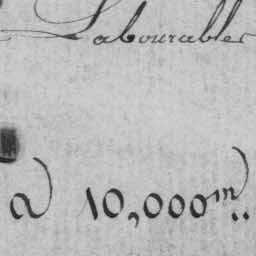 Labourables
a) 10,000 m)..